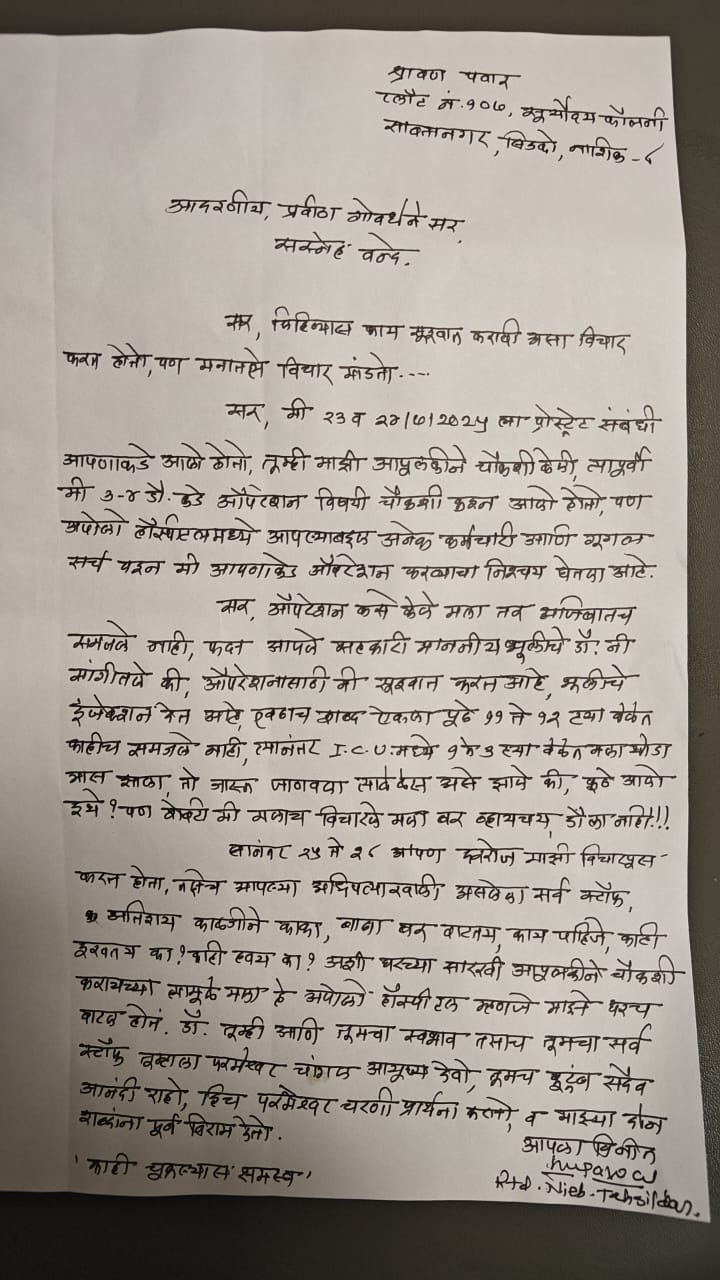 श्रावण पवार
प्लॉट नं. १०७, सूर्योदय कॉलनी
सावतानगर, सिडको, नाशिक - ८
आदरणीय, प्रवीण गोवर्धने सर,
सस्नेह वन्दे.
सर, लिहिण्यास काय सुरुवात करावी असा विचार
करत होतो, पण मनातले विचार मांडतो....
सर, मी २३ व २४/७/२०२५ ला प्रोस्ट्रेट संबंधी
आपणाकडे आलो होतो, तुम्ही माझी आपुलकीने चौकशी केली, त्यापूर्वी
मी ३-४ डॉ. कडे ऑपरेशन विषयी चौकशी करून आलो होतो, पण
अपोलो हॉस्पीटलमध्ये आपल्याबद्दल अनेक कर्मचारी आणि गूगल
सर्च वरून मी आपणाकडे ऑपरेशन करण्याचा निश्चय घेतला आहे.
सर, ऑपरेशन कसे केले मला तर अजिबातच
समजले नाही, फक्त आपले सहकारी माननीय भूलीचे डॉ. नी
सांगीतले की, ऑपरेशनासाठी मी सुरुवात करत आहे, भूलीचे
इंजेक्शन देत आहे, एवढाच शब्द ऐकला पुढे ११ ते १२ ह्या वेळेत
काहीच समजले नाही, त्यानंतर I.C.U. मध्ये १ ते ३ ह्या वेळेत मला थोडा
त्रास झाला, तो जास्त जाणवला त्यावेळेस असे झाले की, कुठे आलो
इथे? पण शेवटी मी मलाच विचारले मला बरं व्हायचय, डौला नाही!!!
त्यानंतर २५ ते २८ आपण दररोज माझी विचारपूस
करत होता, तसेच आपल्या अधिपत्याखाली असलेला सर्व स्टॉफ,
अतिशय काळजीने काका, बाबा बरं वाटतय, काय पाहिजे, काही
दुखतय का? काही हवय का? अशी घरच्या सारखी आपुलकीने चौकशी
करायच्या त्यामूळे मला हे अपोलो हॉस्पीटल म्हणजे माझे घरच
वाटत होतं. डॉ. तूम्ही आणि तूमचा स्वभाव तसाच तूमचा सर्व
स्टॉफ तुम्हाला परमेश्वर चांगलं आयुष्य देवो, तूमचं कुटुंब सदैव
आनंदी राहो, हिच परमेश्वर चरणी प्रार्थना करतो, व माझ्या दोन
शब्दांना पूर्ण विराम देतो.
आपला विनीत
'काही चुकल्यास क्षमस्व'
Rtd. Nieb-Tehsildar.